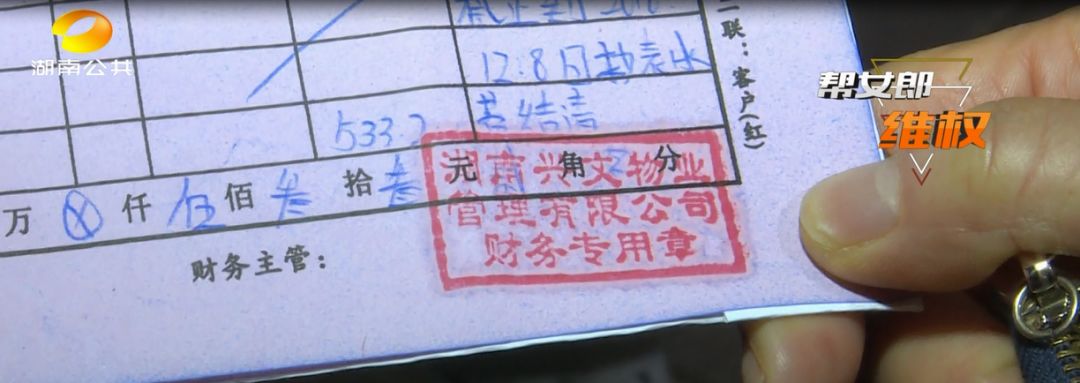 湖南公共
帮女郎
维权
二联：客户(红)
12.8日抄表水
533.2
若结清
万 ⊗ 仟 伍 佰 叁 拾 叁 元 角 分
湖南兴文物业
管理有限公司
财务专用章
财务主管：